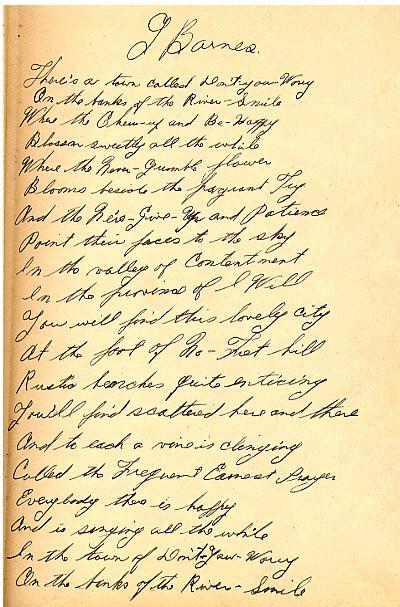 I Barnes.
There's a town called Don't-you-Worry
On the banks of the River-Smile
Where the Cheer-up and Be-Happy
Blossom sweetly all the while
Where the Never-Grumble flower
Blooms beside the fragrant Try
And the Ne'er-Give-Up and Patience
Point their faces to the sky
In the valley of Contentment
In the province of I Will
You will find this lovely city
At the foot of No-Fret hill
Rustic benches quite enticing
You'll find scattered here and there
And to each a vine is clinging
Called the Frequent Earnest Prayer
Everybody there is happy
And is singing all the while
In the town of Don't-You-Worry
On the banks of the River-Smile